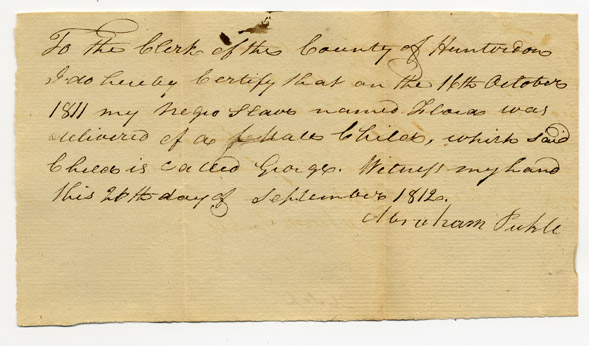 To the Clerk of the County of Hunterdon
I do hereby Certify that on the 16th October
1811 my Negro Slave named Flora was
delivered of a Male Child, which said
Child is called George. Witness my hand
this 20th day of September 1812.
Abraham